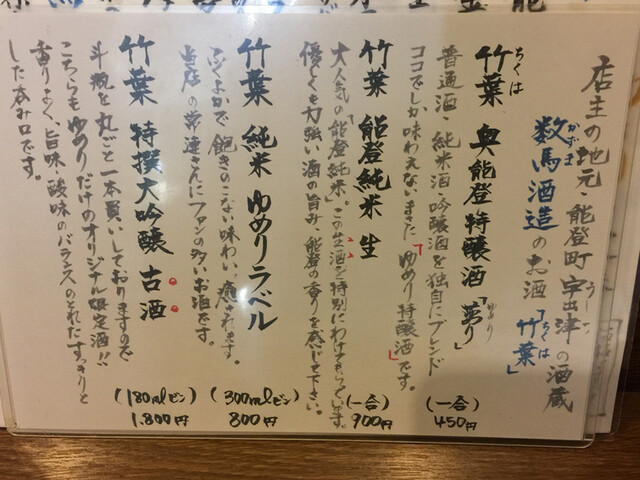 店主の地元、能登町宇出津の酒蔵
うしつ
数馬酒造のお酒「竹葉」
かずま
ちくは
竹葉 奥能登特醸酒「夢り」
ちくは
ゆめり
普通酒・純米酒・吟醸酒を独自にブレンド
ココでしか味わえないまさに「ゆめり特醸酒」です。
(一合)
450円
竹葉 能登純米 生
大人気の「能登純米」。この生酒を特別にわけてもらっています。
優しくも力強い酒の旨み、能登の香りを感じて下さい。
(一合)
900円
竹葉 純米 ゆめりラベル
ふくよかで飽きのこない味わい、癒されます。
当店の常連さんにファンの多いお酒です。
(300mlビン)
800円
竹葉 特撰大吟醸 古酒
斗瓶を丸ごと一本買いしておりますので
こちらもゆめりだけのオリジナル限定酒!!
香りよく、旨味・酸味のバランスのとれたすっきりと
した呑み口です。
(180mlビン)
1.800円